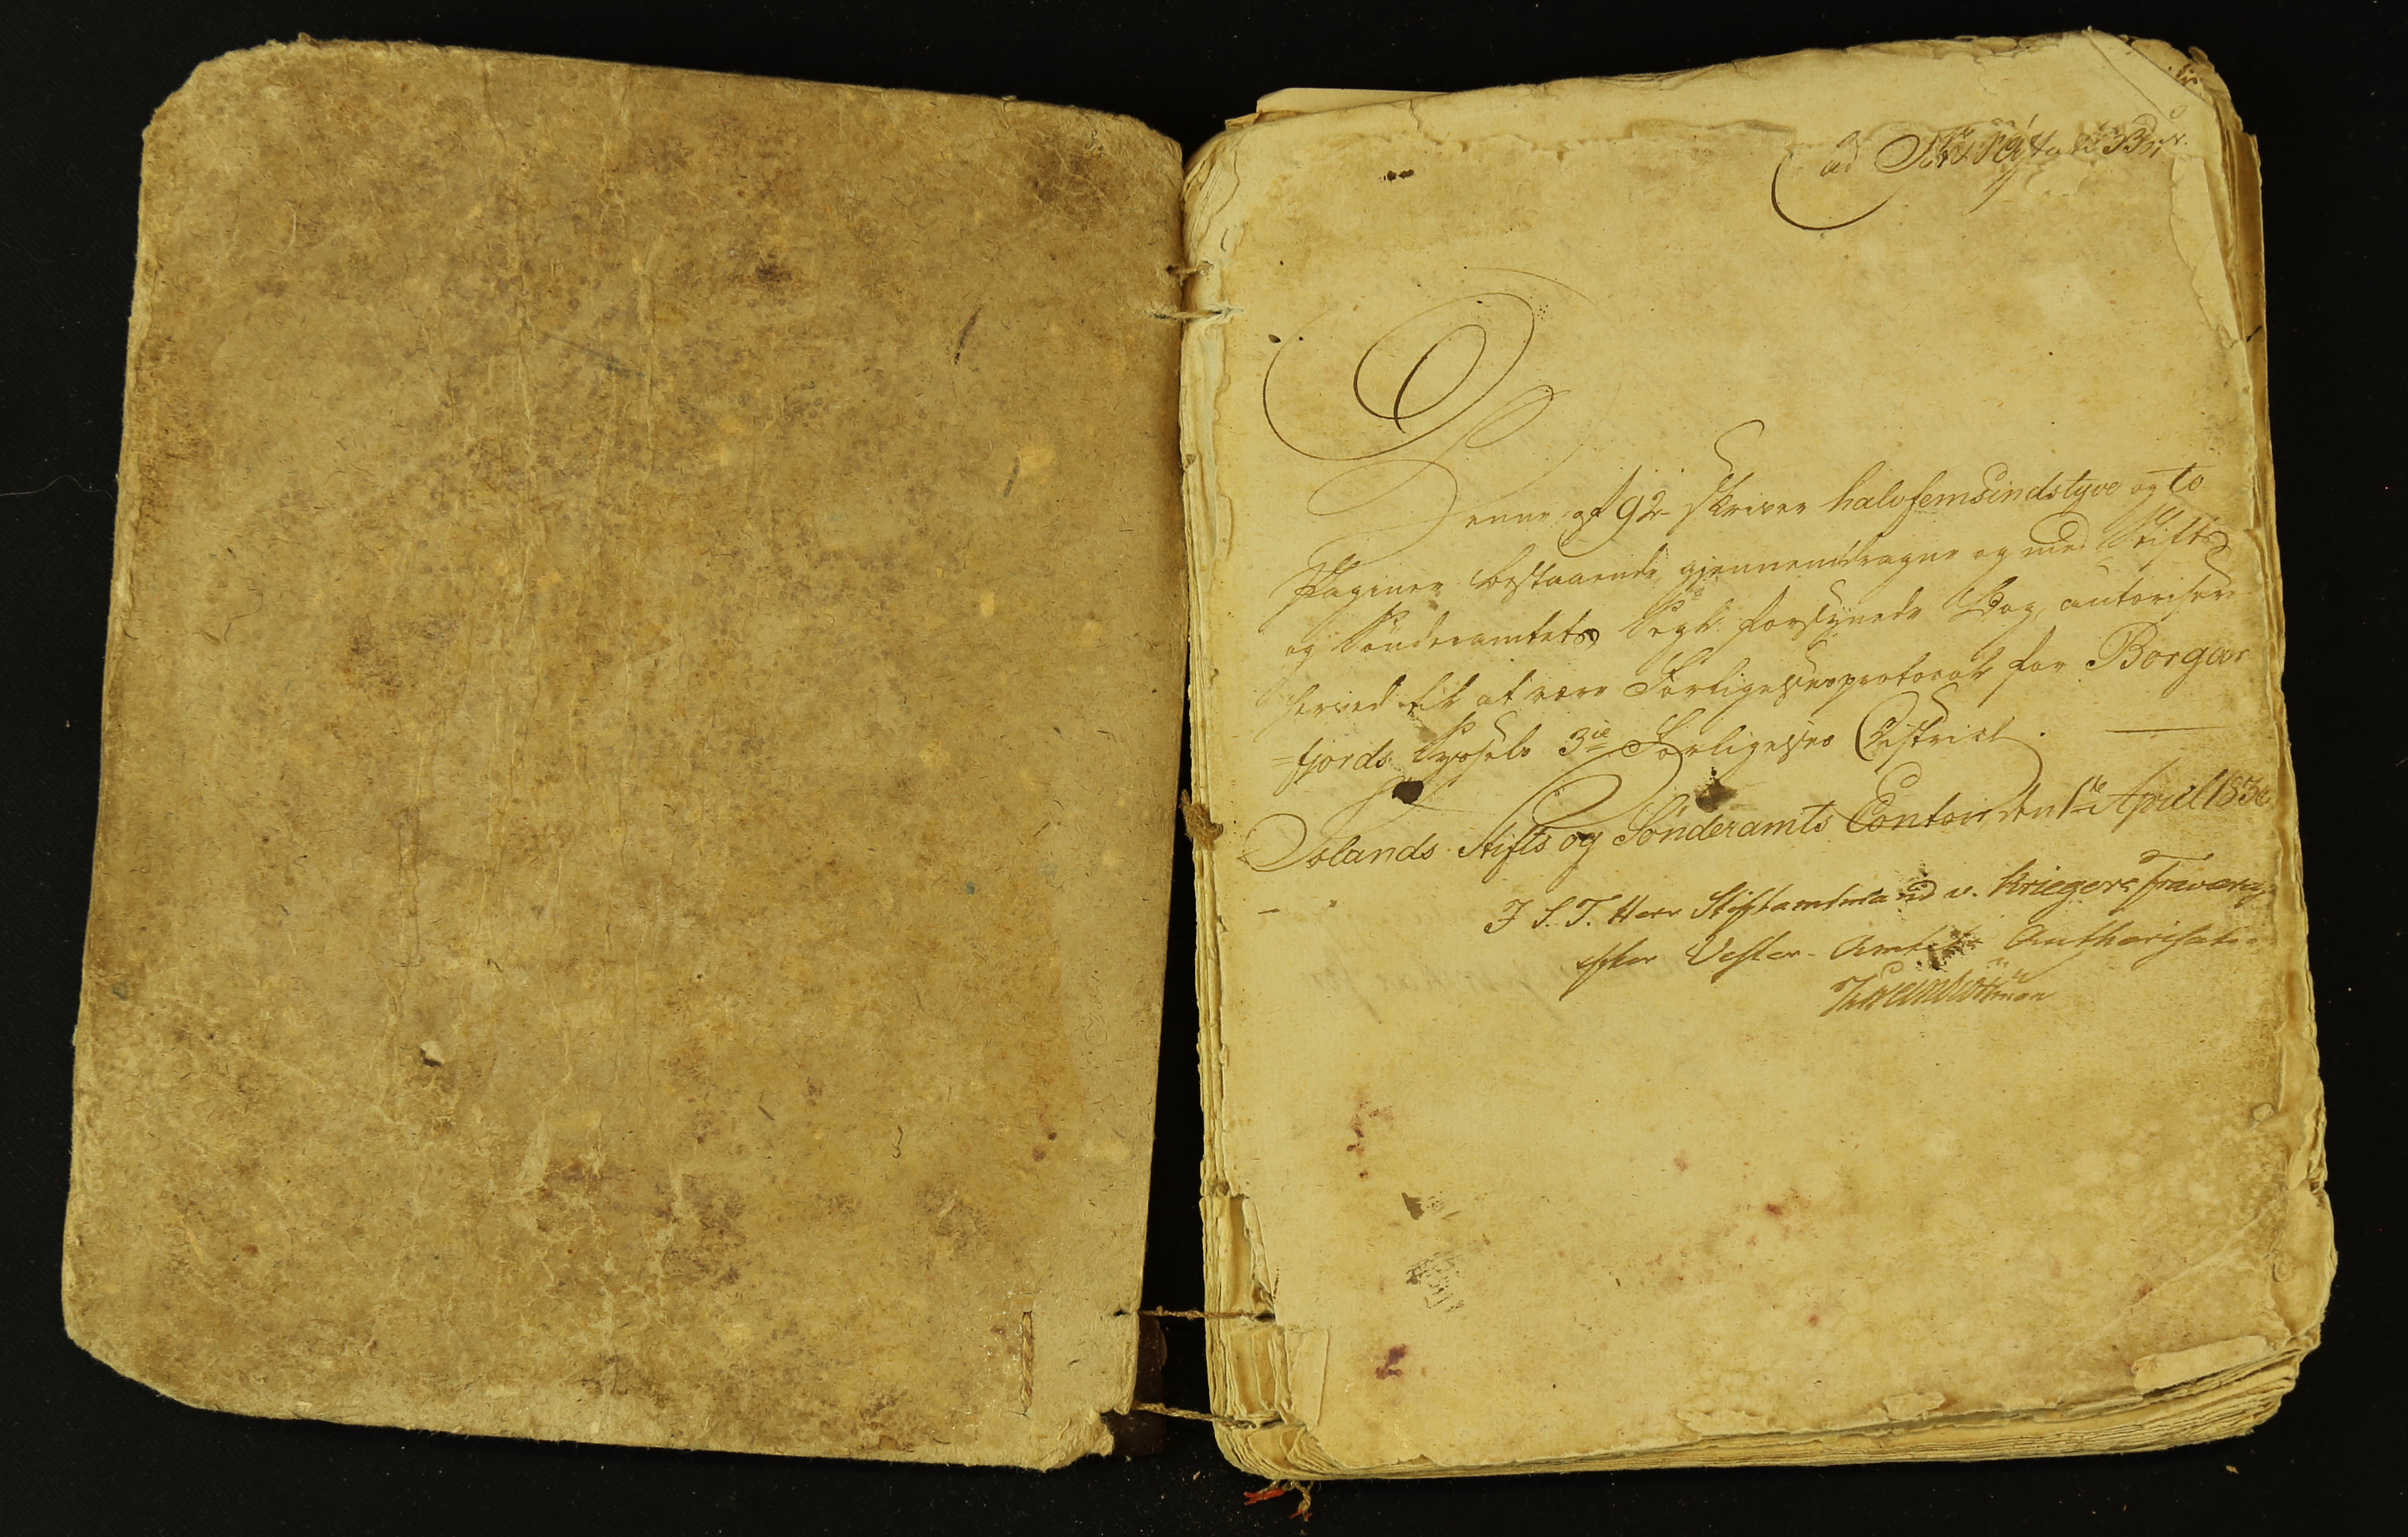 ad
Denne af 92 skriver halvfemsindstyve og to
Paginer bestaaende, gjennemdragne og med Stifts
og Sönderamtets Segl forsynede Bog, autoriseres
herved til at være Forligelsesprotocol for Borgar
=fjords Syssels 3ie Forligelses District.
Islands Stifts og Sönderamts Contoir, den 1te April 183
I S. T. Herr Stiftamtmand v. Kriegers Fraværelse
efter Vester-Amtets Authorisation